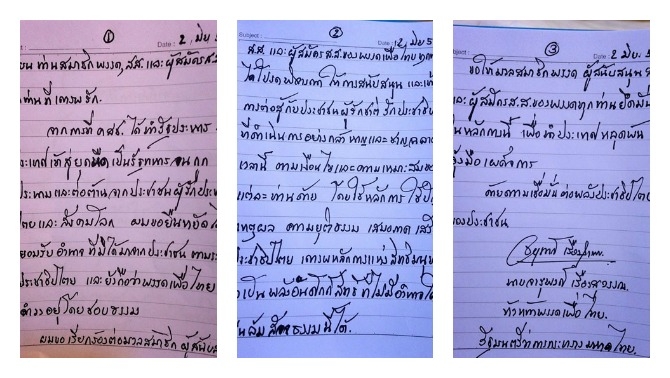 ①
Date : 2 มิย 5
ยน ท่านสมาชิกพรรค, สส. และ ผู้สมัครส.ส
ท่านที่เคารพรัก.
จากการที่ คสช. ได้ทำรัฐประหาร
ะเทศเข้าสู่ยุคมืด เป็นรัฐทหาร จนถูก
ระหามและต่อต้านจากประชาชน ผู้รักประช
ไตย และ สังคมโลก ผมขอยืนหยัดไ
ยอมรับ อำนาจ ที่มิได้มาจาก ประชาชน ตามระ
ประชาธิปไตย และ ยังถือว่าพรรคเพื่อไทย
ดำรงอยู่โดยชอบธรรม
ผมขอเรียกร้องต่อมวลสมาชิก ผู้สนับส
Subject :
②
Date : 2, มิย 5
ส.ส. และ ผู้สมัคร ส.ส. ของพรรคเพื่อไทย ทุก
ได้โปรดพิจารณา ให้การสนับสนุน และเข้
การต่อสู้กับประชาชนผู้รักชาติ รักประชาธิป
ที่ดำเนินการอย่างกล้าหาญและชาญฉลาด
เวลานี้ ตามเงื่อนไขและความเหมาะสมขอ
แต่ละท่านด้วย โดยใช้หลักการ
เหตุผล ความยุติธรรม เสมอภาค เสรี
ะชาธิปไตย เคารพหลักการแห่งสิทธิมนุษ
ะเป็นพลังอันศักดิ์สิทธิ์ ที่ไม่มีอำนาจใด
นล้มสัจธรรมนี้ได้.
bject :
③
Date 2 มิย. 5
ขอให้มวลสมาชิกพรรค ผู้สนับสนุน
และ ผู้สมัคร ส.ส. ของพรรคทุกท่าน ยึดมั่น
นหลักการนี้ เพื่อนำประเทศหลุดพ้น
งมือเผด็จการ
ด้วยความเชื่อมั่นต่อพลังประชาธิปไตย
ของประชาชน
นายจารุพงศ์ เรืองสุวรรณ.
หัวหน้าพรรคเพื่อไทย.
รัฐมนตรีว่าการกระทรวงมหาดไทย.